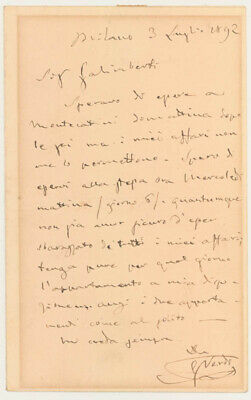 Milano 3 Luglio 1892
Sig Galimberti
Speravo di essere a
Montecatini domattina dopo
le sei ma i miei affari non
me lo permettono. Spero di
esservi alla stessa ora Mercoledi
mattina (giorno 6) quantunque
non sia anur sicuro d'esser
sbarazzato de tutti i miei affari,
tenga pure per quel giorno
l'appartamento a mia dispo-
sizione, anzi i due apparta-
menti come al solito —
Mi creda sempre
G Verdi